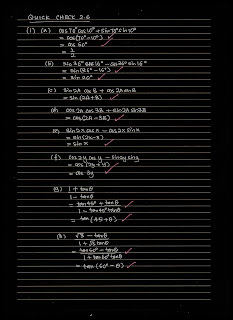 QUICK CHECK 2.6
(1) (a) cos 70° cos 10° + sin 70° sin 10°
= cos (70° - 10°)
= cos 60°
= 1/2
(b) sin 36° cos 16° - cos 36° sin 16°
= sin (36° - 16°)
= sin 20°
(c) sin 2A cos B + cos 2A sin B
= sin (2A + B)
(d) cos 2A cos 3B + sin 2A sin 3B
= cos (2A - 3B)
(e) sin 2x cos x - cos 2x sin x
= sin (2x - x)
= sin x
(f) cos 2y cos y - sin 2y sin y
= cos (2y + y)
= cos 3y
(g) 1 + tan θ
1 - tan θ
= tan 45° + tan θ
1 - tan 45° tan θ
= tan (45 + θ)
(h) √3 - tan θ
1 + √3 tan θ
= tan 60° - tan θ
1 + tan 60° tan θ
= tan (60° - θ)